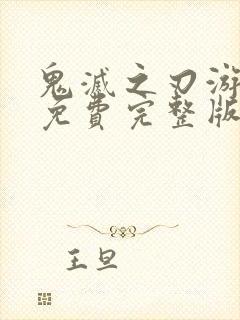 鬼滅之刃游
免費完整版
王旦